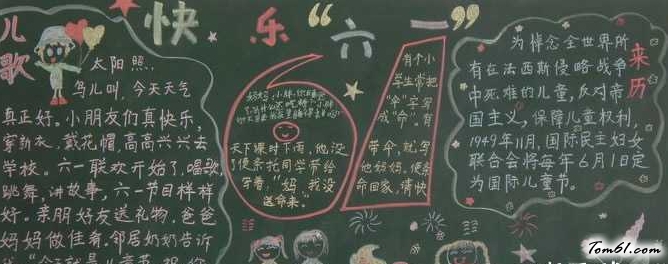 快乐“六一”
儿歌
太阳照,
鸟儿叫,今天天气
真正好。小朋友们真快乐,
穿新衣、戴花帽,高高兴兴去
学校。六一联欢开始了,唱歌、
跳舞、讲故事,六一节目样样
好。亲朋好友送礼物,爸爸
妈妈做佳肴,邻居奶奶告诉
天下课时下雨,他没
了便条托同学带给
写着:“妈,我没
送命来。”
有个小
学生常把
“伞”字写
成“命”。有
带伞,就写
他妈妈,便条
命回家,请快
来历
为悼念全世界所
有在法西斯侵略战争
中死难的儿童,反对帝
国主义,保障儿童权利,
1949年11月,国际民主妇女
联合会将每年6月1日定
为国际儿童节。
Tom61.com